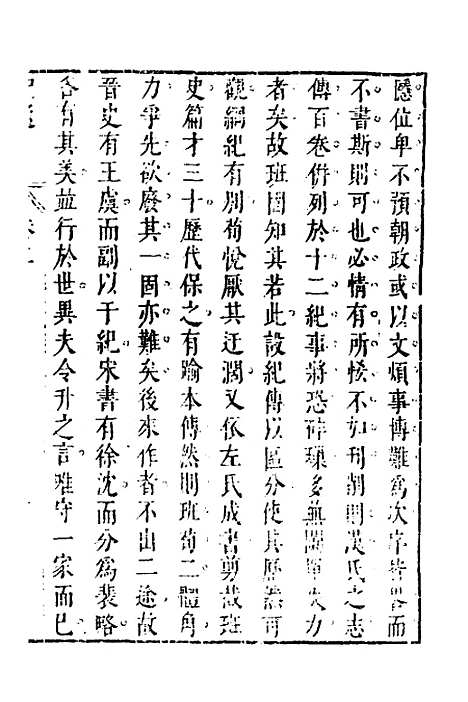 德位卑不預朝政或以文煩事博難爲次序皆畧而
不書斯則可也必情有所怪不加刊削則漢氏之志
傳百卷併列於十二紀事將恐碎瑣多無闌單失力
者矣故班固知其若此設紀傳以區分使其歷然可
觀綱紀有別荀悅厭其迂濶又依左氏成書剪裁班
史篇才三十歷代保之有踰本傳然則班荀二體角
力爭先欲廢其一固亦難矣後來作者不出二途故
晉史有王虞而副以干紀宋書有徐沈而分爲裴略
各有其美並行於世異夫令升之言唯守一家而已